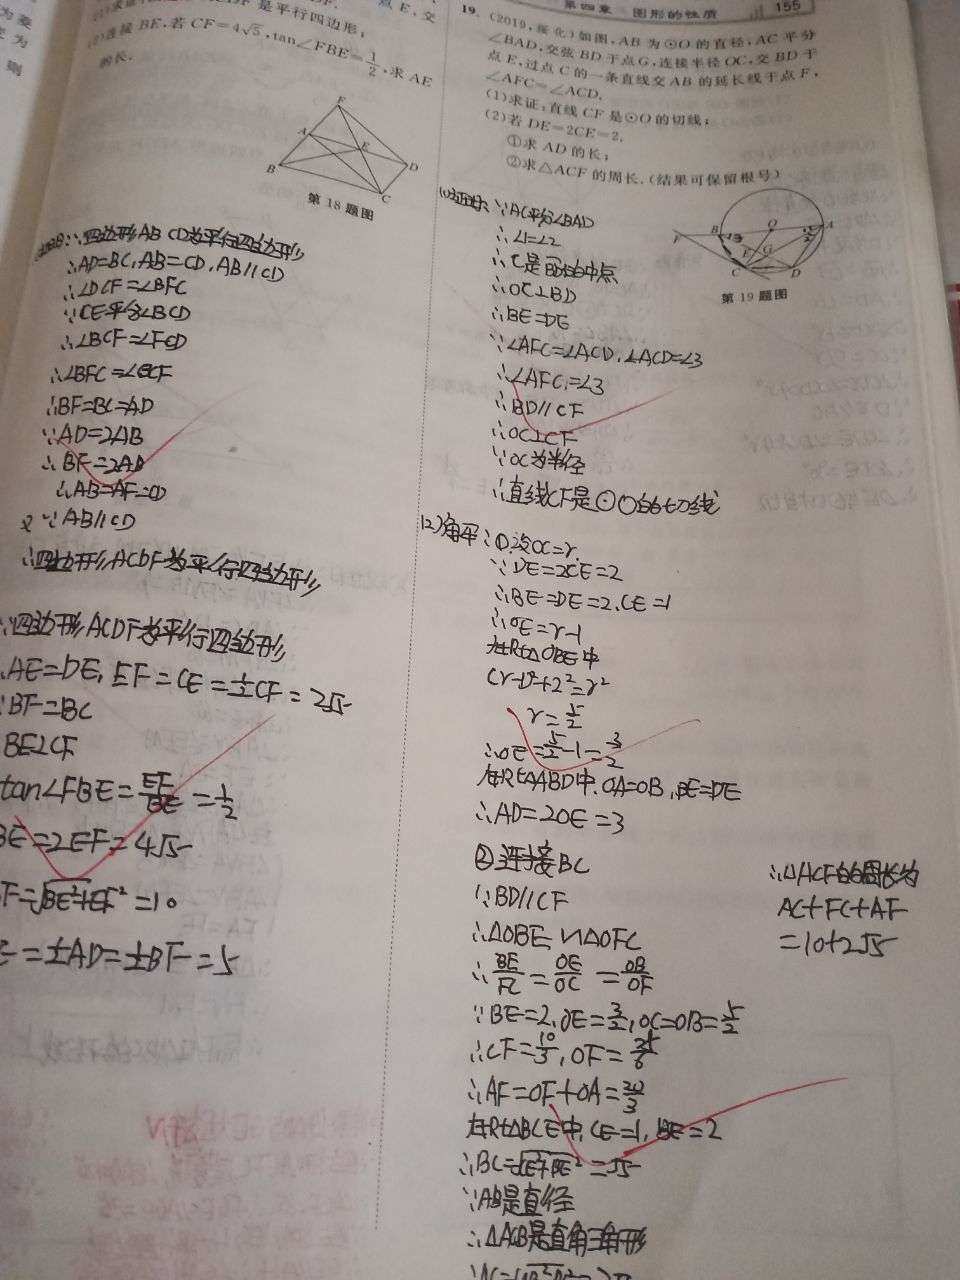 是平行四边形;
(2)连接BE,若CF=4√5,tan∠FBE=1/2,求AE
的长.
第18题图
∵四边形ABCD为平行四边形
∴AD=BC,AB=CD,AB//CD
∴∠DCF=∠BFC
∵CE平分∠BCD
∴∠BCF=∠FCD
∴∠BFC=∠BCF
∴BF=BC=AD
∵AD=2AB
∴BF=2AB
∴AB=AF=CD
又∵AB//CD
∴四边形ACDF为平行四边形
∵四边形ACDF为平行四边形
AE=DE,EF=CE=½CF=2√5
∵BF=BC
BE⊥CF
tan∠FBE=EF/BE=1/2
BE=2EF=4√5
F=√BE²+EF²=10
E=½AD=½BF=5
第四章 图形的性质 155
19.(2019,绥化)如图,AB为⊙O的直径,AC平分
∠BAD,交弦BD于点G,连接半径OC,交BD于
点E,过点C的一条直线交AB的延长线于点F,
∠AFC=∠ACD.
(1)求证:直线CF是⊙O的切线;
(2)若DE=2CE=2.
①求AD的长;
②求△ACF的周长.(结果可保留根号)
第19题图
(1)证明:∵AC平分∠BAD
∴∠1=∠2
∴C是的中点
∴OC⊥BD
∴BE=DE
∵∠AFC=∠ACD,∠ACD=∠3
∴∠AFC=∠3
∴BD//CF
∴OC⊥CF
∵OC为半径
∴直线CF是⊙O的切线
(2)解:①设OC=r.
∵DE=2CE=2
∴BE=DE=2,CE=1
∴OE=r-1
在Rt△OBE中
(r-1)²+2²=r²
r=5/2
∴OE=5/2-1=3/2
在Rt△ABD中,OA=OB,BE=DE
∴AD=2OE=3
②连接BC
∵BD//CF
∴△OBE∽△OFC
∴BE/FC=OE/OC=OB/OF
∵BE=2,OE=3/2,OC=OB=5/2
∴CF=10/3,OF=25/6
∴AF=OF+OA=20/3
在Rt△BCE中,CE=1,BE=2
∴BC=√CE²+BE²=√5
∵AB是直径
∴△ACB是直角三角形
∴△ACF的周长为
AC+FC+AF
=10+2√5